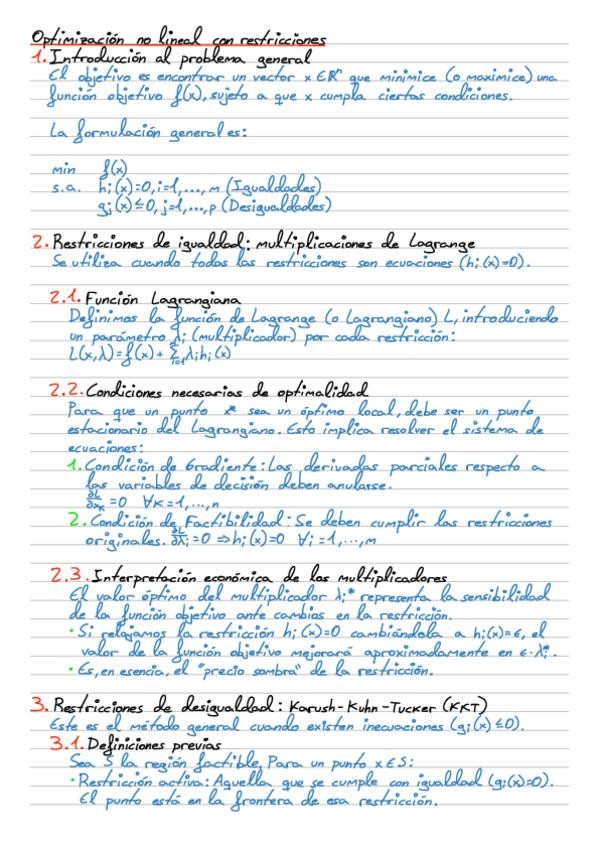 Optimización no lineal con restricciones
1. Introducción al problema general
El objetivo es encontrar un vector x ∈ ℝⁿ que minimice (o maximice) una
función objetivo f(x), sujeto a que x cumpla ciertas condiciones.
La formulación general es:
min f(x)
s.a. hᵢ(x)=0, i=1,...,m (Igualdades)
gⱼ(x)≤0, j=1,...,p (Desigualdades)
2. Restricciones de igualdad: multiplicaciones de Lagrange
Se utiliza cuando todas las restricciones son ecuaciones (hᵢ(x)=0).
2.1. Función Lagrangiana
Definimos la función de Lagrange (o Lagrangiano) L, introduciendo
un parámetro λᵢ (multiplicador) por cada restricción:
L(x,λ)=f(x)+ Σᵢ₌₁ᵐ λᵢhᵢ(x)
2.2. Condiciones necesarias de optimalidad
Para que un punto x* sea un óptimo local, debe ser un punto
estacionario del Lagrangiano. Esto implica resolver el sistema de
ecuaciones:
1. Condición de Gradiente: Las derivadas parciales respecto a
las variables de decisión deben anularse.
∂L/∂xₖ =0 ∀k=1,...,n
2. Condición de Factibilidad: Se deben cumplir las restricciones
originales. ∂L/∂λᵢ =0 ⇒ hᵢ(x)=0 ∀i=1,...,m
2.3. Interpretación económica de los multiplicadores
El valor óptimo del multiplicador λᵢ* representa la sensibilidad
de la función objetivo ante cambios en la restricción.
• Si relajamos la restricción hᵢ(x)=0 cambiándola a hᵢ(x)=ε, el
valor de la función objetivo mejorará aproximadamente en ε·λᵢ*.
• Es, en esencia, el "precio sombra" de la restricción.
3. Restricciones de desigualdad: Karush-Kuhn-Tucker (KKT)
Este es el método general cuando existen inecuaciones (gⱼ(x)≤0).
3.1. Definiciones previas
Sea S la región factible, Para un punto x∈S:
• Restricción activa: Aquella que se cumple con igualdad (gⱼ(x)=0).
El punto está en la frontera de esa restricción.